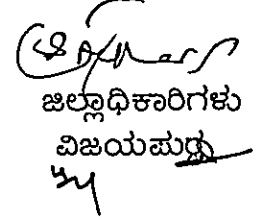 ಜಿಲ್ಲಾಧಿಕಾರಿಗಳು
ವಿಜಯಪುರ